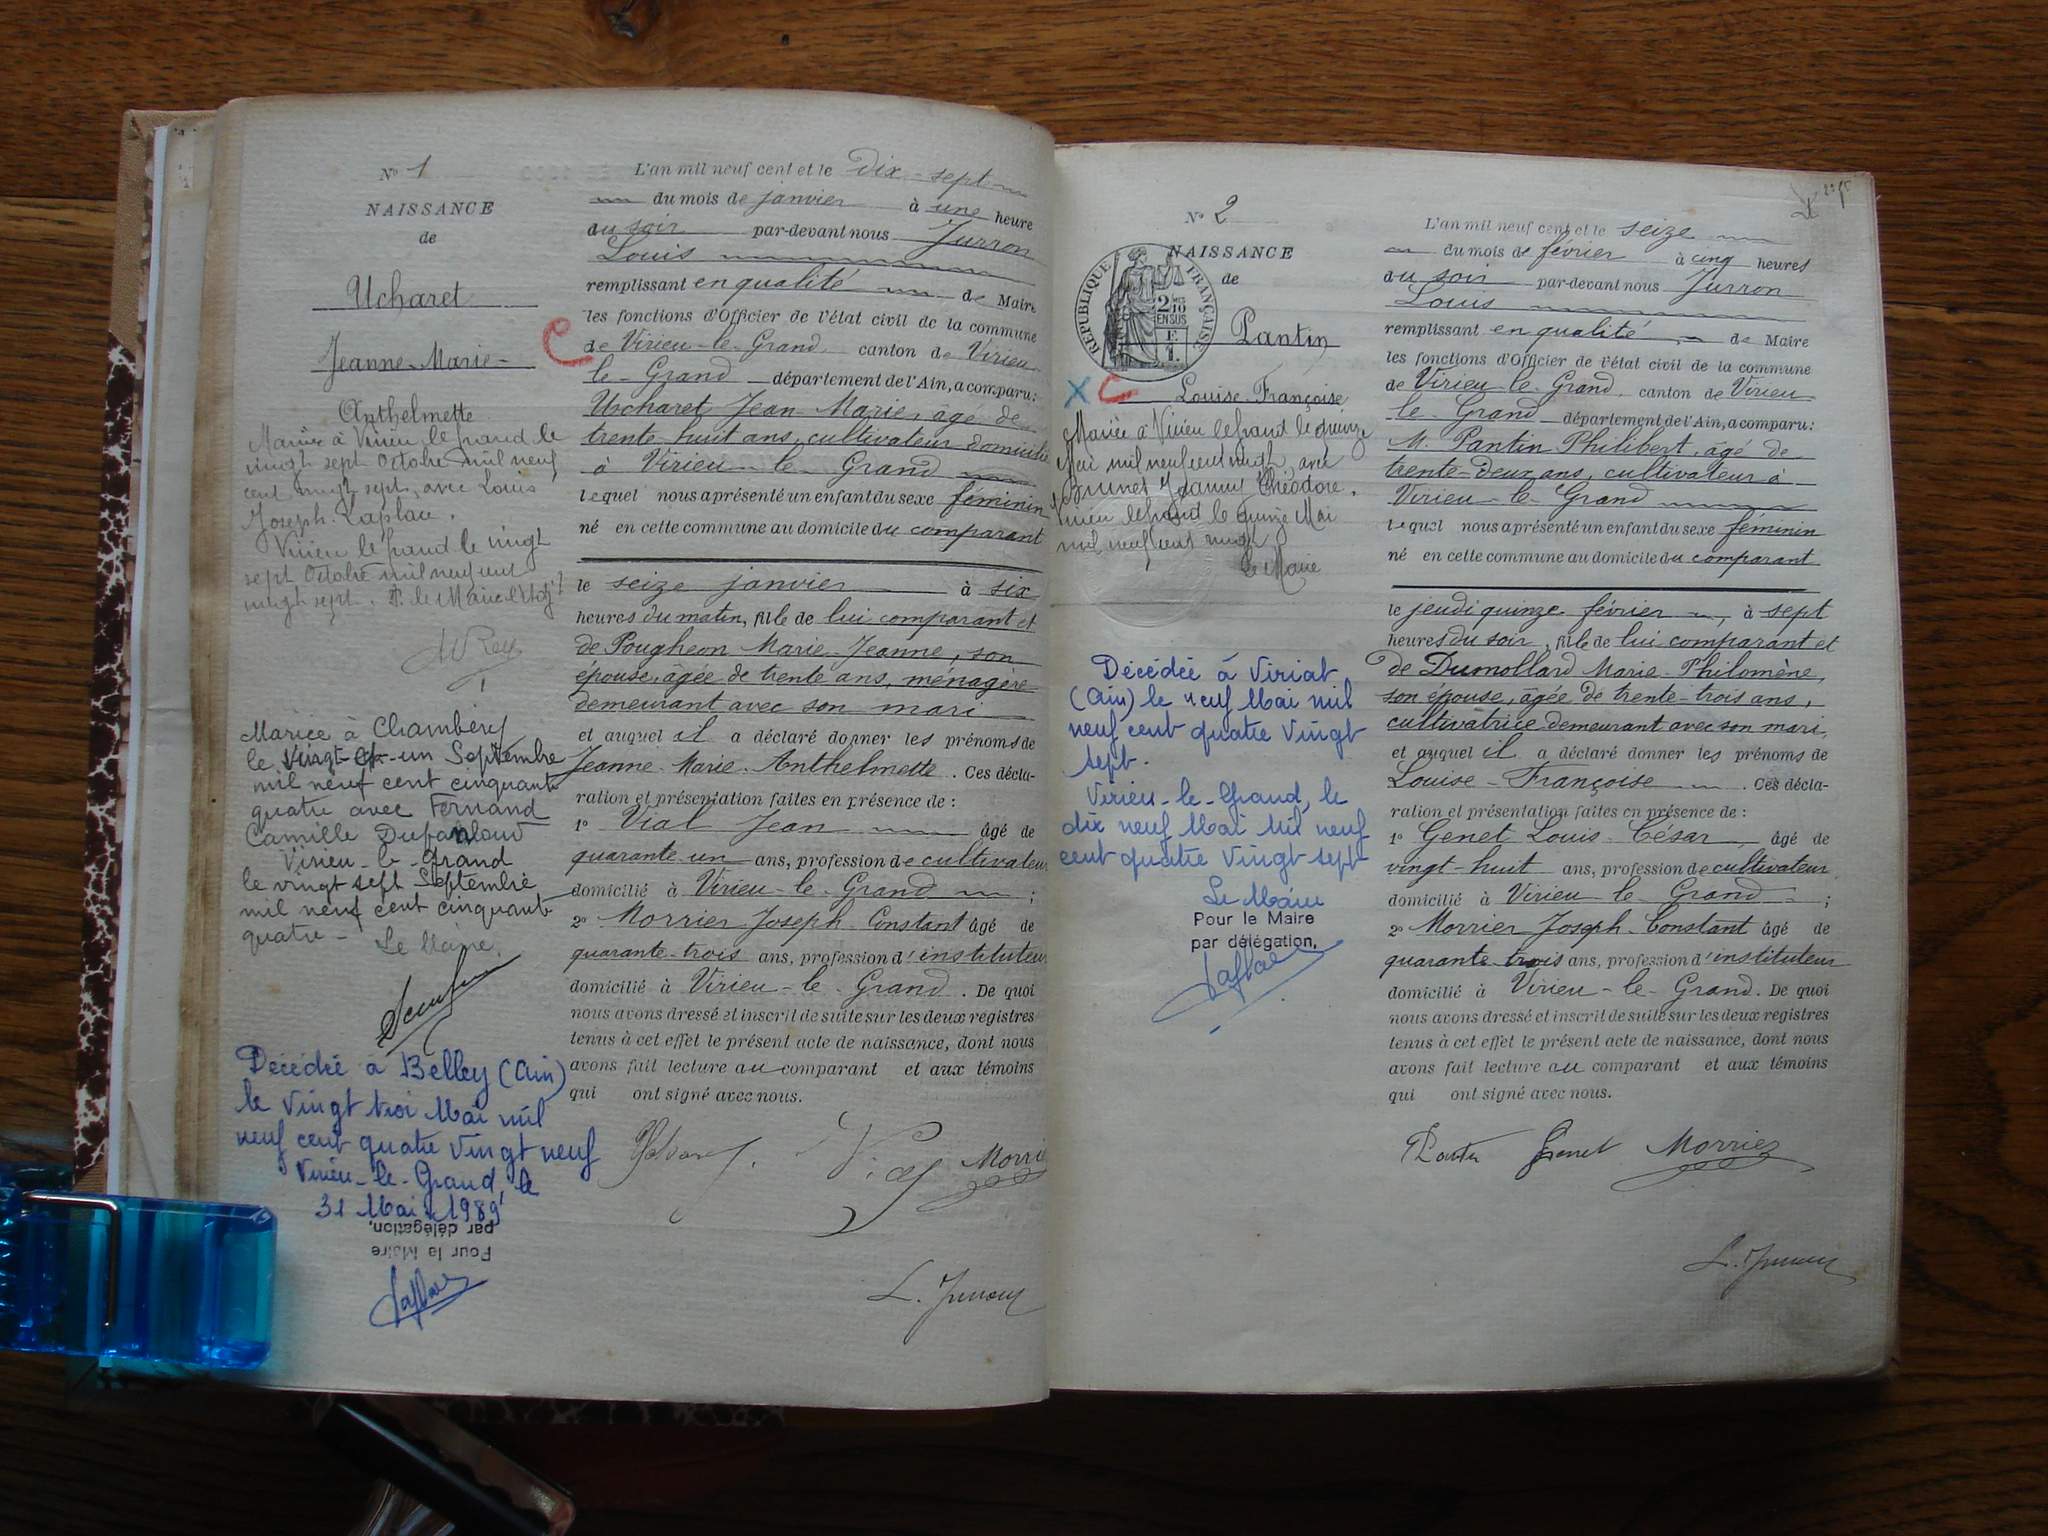 N° 1
NAISSANCE
de
Ucharet
Jeanne-Marie-
Anthelmette
Mariée à Virieu le grand le
vingt sept Octobre mil neuf
cent vingt sept, avec Louis
Joseph Laplace.
Virieu le grand le vingt
sept Octobre mil neuf cent
vingt sept.
Mariée à Chambéry
le vingt-et-un Septembre
mil neuf cent cinquante
quatre avec Fernand
Camille Dupanloud
Virieu-le-Grand
le vingt sept Septembre
mil neuf cent cinquante
quatre - Le Maire.
Décédée à Belley (Ain)
le vingt troi Mai mil
neuf cent quatre vingt neuf
Virieu-le-Grand, le
31 Mai 1989
Pour le Maire
par délégation,
L'an mil neuf cent et le dix-sept
du mois de janvier à une heure
du soir par-devant nous Jurron
Louis
remplissant en qualité de Maire
les fonctions d'Officier de l'état civil de la commune
de Virieu-le-Grand, canton de Virieu-
le-Grand département de l'Ain, a comparu:
Ucharet Jean-Marie, âgé de
trente-huit ans, cultivateur domicilié
à Virieu-le-Grand
lequel nous a présenté un enfant du sexe féminin
né en cette commune au domicile du comparant
le seize janvier à six
heures du matin, fille de lui comparant et
de Pougheon Marie-Jeanne, son
épouse, âgée de trente ans, ménagère
demeurant avec son mari
et auquel il a déclaré donner les prénoms de
Jeanne-Marie-Anthelmette. Ces décla-
ration et présentation faites en présence de :
1° Vial Jean âgé de
quarante-un ans, profession de cultivateur
domicilié à Virieu-le-Grand ;
2° Morrier Joseph-Constant âgé de
quarante-trois ans, profession d'instituteur
domicilié à Virieu-le-Grand. De quoi
nous avons dressé et inscrit de suite sur les deux registres
tenus à cet effet le présent acte de naissance, dont nous
avons fait lecture au comparant et aux témoins
qui ont signé avec nous.
Morrier
L. Jurron
N° 2
NAISSANCE
de
RÉPUBLIQUE FRANÇAISE
2/10
EN SUS
Pantin
Louise-Françoise
Mariée à Virieu le grand le quinze
Mai mil neuf cent vingt, avec
Brunet Joanny Théodore.
Virieu le grand le quinze Mai
mil neuf cent vingt
Le Maire
Décédée à Viriat
(Ain) le neuf Mai mil
neuf cent quatre vingt
sept.
Virieu-le-Grand, le
dix neuf Mai mil neuf
cent quatre vingt sept
Le Maire
Pour le Maire
par délégation,
L'an mil neuf cent et le seize
du mois de février à cinq heures
du soir par-devant nous Jurron
Louis
remplissant en qualité de Maire
les fonctions d'Officier de l'état civil de la commune
de Virieu-le-Grand, canton de Virieu
le-Grand département de l'Ain, a comparu:
M. Pantin Philibert, âgé de
trente-deux ans, cultivateur à
Virieu-le-Grand
lequel nous a présenté un enfant du sexe féminin
né en cette commune au domicile du comparant
le jeudi quinze février, à sept
heures du soir, fille de lui comparant et
de Dumollard Marie-Philomène,
son épouse, âgée de trente-trois ans,
cultivatrice demeurant avec son mari,
et auquel il a déclaré donner les prénoms de
Louise-Françoise. Ces décla-
ration et présentation faites en présence de :
1° Genet Louis-César, âgé de
vingt-huit ans, profession de cultivateur
domicilié à Virieu-le-Grand ;
2° Morrier Joseph-Constant âgé de
quarante-trois ans, profession d'instituteur
domicilié à Virieu-le-Grand. De quoi
nous avons dressé et inscrit de suite sur les deux registres
tenus à cet effet le présent acte de naissance, dont nous
avons fait lecture au comparant et aux témoins
qui ont signé avec nous.
Pantin Genet Morrier
L. Jurron